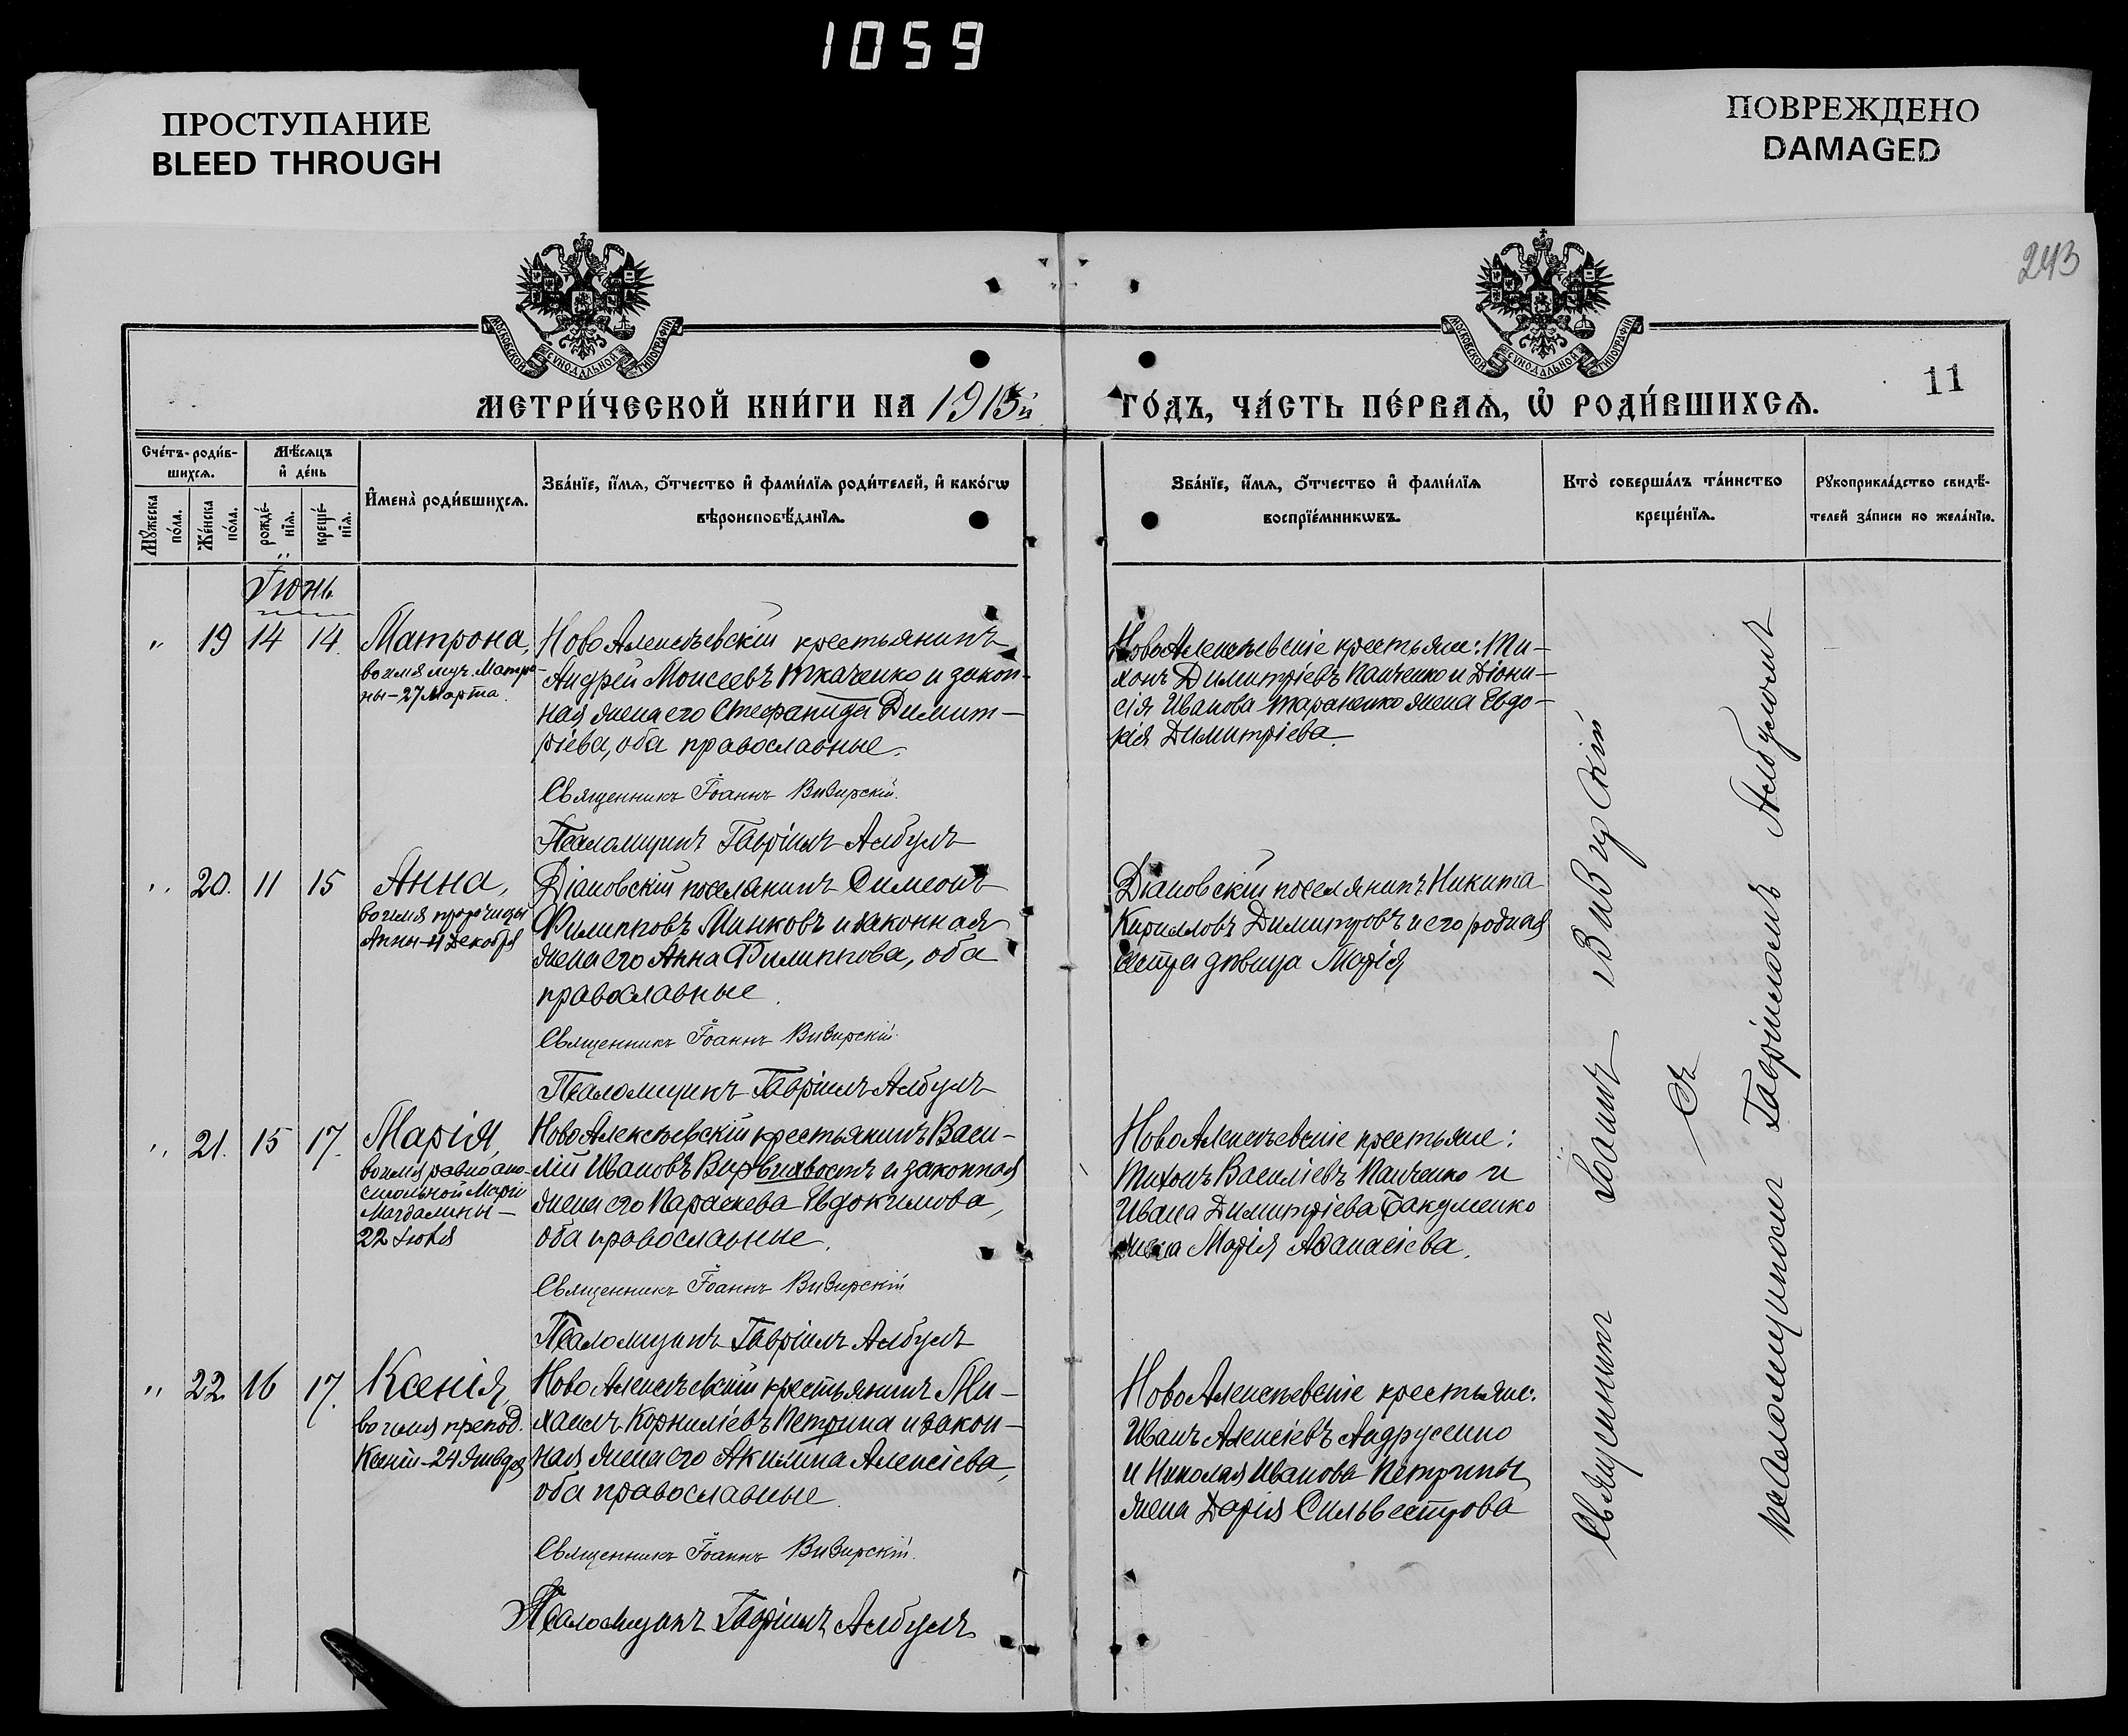 1059
ПРОСТУПАНИЕ
BLEED THROUGH
ПОВРЕЖДЕНО
DAMAGED
243
МОСКОВСКОЙ СѴНОДАЛЬНОЙ ТИПОГРАФІИ
МОСКОВСКОЙ СѴНОДАЛЬНОЙ ТИПОГРАФІИ
11
МЕТРИ́ЧЕСКОЙ КНИ́ГИ НА 1913й
ГО́ДЪ, ЧА́СТЬ ПЕ́РВАѦ, Ѡ҆ РОДИ́ВШИХСѦ.
Сче́тъ роди́в-
шихсѧ.
Мѣ́сѧцъ
и҆ де́нь
Мꙋ́жеска
по́ла.
Же́нска
по́ла.
рожде́-
нїѧ.
креще́-
нїѧ.
И҆мена̀ роди́вшихсѧ.
Зва́нїе, и҆́мѧ, ѻ҆́тчество и҆ фами́лїѧ роди́телей, и҆ како́гѡ
вѣроисповѣ́данїѧ.
Зва́нїе, и҆́мѧ, ѻ҆́тчество и҆ фами́лїѧ
воспрїе́мникѡвъ.
Кто̀ соверша́лъ та́инство
креще́нїѧ.
Рꙋкоприкла́дство свидѣ́-
телей за́писи по жела́нїю.
Іюнь
" 19 14 14. Матрона,
во имя муч. Матро-
ны - 27 Марта.
НовоАлексѣевскій крестьянинъ
Андрей Моисеевъ Ткаченко и закон-
ная жена его Стефанида Димит-
ріева, оба православные.
Священникъ Іоаннъ Вивирскій.
Псаломщикъ Гавріилъ Албулъ
НовоАлексѣевскіе крестьяне: Ти-
хонъ Димитріевъ Панченко и Діони-
сія Иванова Тараненко жена Евдо-
кія Димитріева.
" 20. 11 15 Анна,
во имя пророчицы
Анны - 9 Декабря
Діановскій поселянинъ Симеонъ
Филипповъ Минковъ и законная
жена его Анна Филиппова, оба
православные.
Священникъ Іоаннъ Вивирскій.
Псаломщикъ Гавріилъ Албулъ
Діановскій поселянинъ Никита
Кирилловъ Димитровъ и его родная
сестра дѣвица Марія
" 21. 15 17. Марія,
во имя равноапо-
стольной Маріи
Магдалины -
22 Іюля
НовоАлексѣевскій крестьянинъ Васи-
лій Ивановъ Вирвихвостъ и законная
жена его Параскева Евдокимова,
оба православные.
Священникъ Іоаннъ Вивирскій
Псаломщикъ Гавріилъ Албулъ
НовоАлексѣевскіе крестьяне:
Тихонъ Василіевъ Панченко и
Ивана Димитріева Бакуменко
жена Марія Аѳанасіева.
" 22. 16 17. Ксенія,
во имя препод.
Ксеніи - 24 Января
НовоАлексѣевскій крестьянинъ Ми-
хаилъ Корниліевъ Петрина и закон-
ная жена его Акилина Алексіева,
оба православные.
Священникъ Іоаннъ Вивирскій.
Псаломщикъ Гавріилъ Албулъ
НовоАлексѣевскіе крестьяне:
Иванъ Алексіевъ Андрусенко
и Николая Иванова Петрины
жена Дарія Сильвестрова
Священникъ Іоаннъ Вивирскій
Съ
псаломщикомъ Гавріиломъ Албуломъ